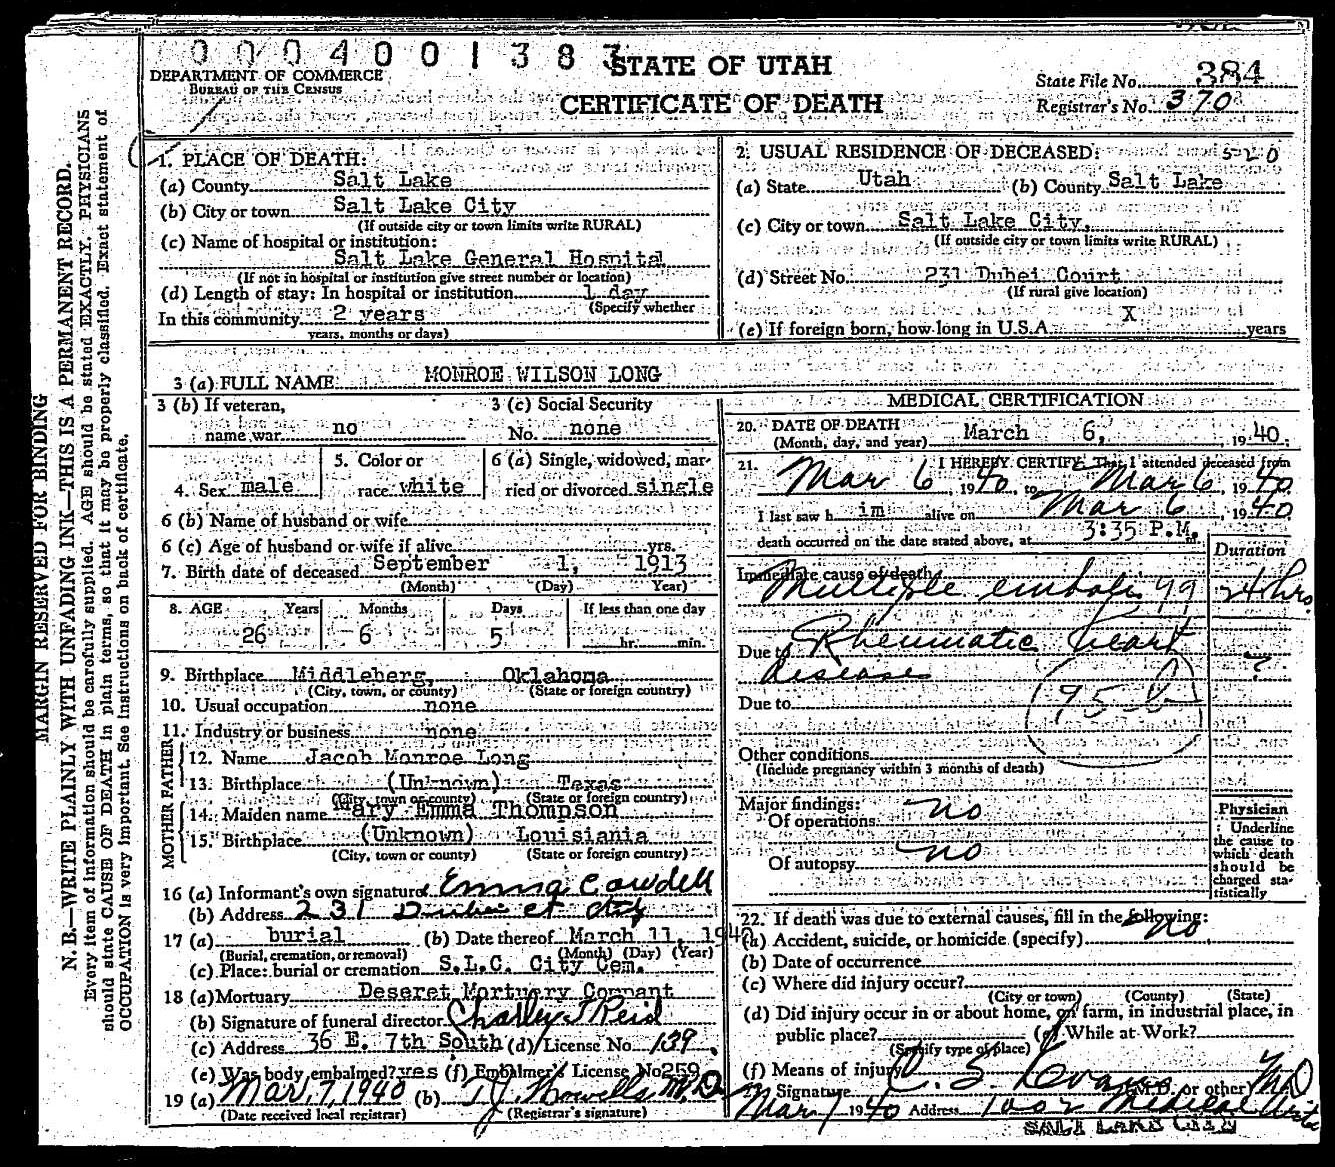 0004001383
STATE OF UTAH
CERTIFICATE OF DEATH
DEPARTMENT OF COMMERCE
BUREAU OF THE CENSUS
State File No. 384
Registrar's No. 370
MARGIN RESERVED FOR BINDING
N. B.—WRITE PLAINLY WITH UNFADING INK—THIS IS A PERMANENT RECORD.
Every item of information should be carefully supplied. AGE should be stated EXACTLY. PHYSICIANS
should state CAUSE OF DEATH in plain terms, so that it may be properly classified. Exact statement of
OCCUPATION is very important. See instructions on back of certificate.
1. PLACE OF DEATH:
(a) County Salt Lake
(b) City or town Salt Lake City
(If outside city or town limits write RURAL)
(c) Name of hospital or institution:
Salt Lake General Hospital
(If not in hospital or institution give street number or location)
(d) Length of stay: In hospital or institution 1 day
(Specify whether
In this community 2 years
years, months or days)
2. USUAL RESIDENCE OF DECEASED:
(a) State Utah (b) County Salt Lake
(c) City or town Salt Lake City,
(If outside city or town limits write RURAL)
(d) Street No. 231 Dubei Court
(If rural give location)
(e) If foreign born, how long in U.S.A. X years
3 (a) FULL NAME MONROE WILSON LONG
3 (b) If veteran,
name war no
3 (c) Social Security
No. none
4. Sex male
5. Color or
race white
6 (a) Single, widowed, mar-
ried or divorced single
6 (b) Name of husband or wife
6 (c) Age of husband or wife if alive yrs.
7. Birth date of deceased September 1, 1913
(Month) (Day) Year)
8. AGE Years Months Days If less than one day
26 6 5 hr. min.
9. Birthplace Middleberg, Oklahoma
(City, town, or county) (State or foreign country)
10. Usual occupation none
11. Industry or business none
FATHER
12. Name Jacob Monroe Long
13. Birthplace (Unknown) Texas
(City, town or county) (State or foreign country)
MOTHER
14. Maiden name Mary Emma Thompson
15. Birthplace (Unknown) Louisiania
(City, town or county) (State or foreign country)
16 (a) Informant's own signature Emma Cowdell
(b) Address 231 Dubei ct city
17 (a) burial (b) Date thereof March 11, 1940
(Burial, cremation, or removal) (Month) (Day) (Year)
(c) Place: burial or cremation S.L.C. City Cem.
18 (a) Mortuary Deseret Mortuary Compant
(b) Signature of funeral director Charley J Reid
(c) Address 36 E. 7th South (d) License No. 139
(e) Was body embalmed? yes (f) Embalmer's License No 259
19 (a) Mar. 7, 1940 (b) T.J. Howells M.D.
(Date received local registrar) (Registrar's signature)
MEDICAL CERTIFICATION
20. DATE OF DEATH
(Month, day, and year) March 6, 1940.
21. I HEREBY CERTIFY That I attended deceased from
Mar 6, 1940, to Mar 6, 1940
I last saw him alive on Mar 6, 1940.
death occurred on the date stated above, at 3:35 P.M.
Duration
Immediate cause of death
Multiple emboli 24 hrs.
Due to Rheumatic heart
disease ?
95-b
Due to
Other conditions
(Include pregnancy within 3 months of death)
Major findings:
Of operations no
Of autopsy no
Physician
Underline
the cause to
which death
should be
charged sta-
tistically
22. If death was due to external causes, fill in the following:
(a) Accident, suicide, or homicide (specify) no
(b) Date of occurrence
(c) Where did injury occur?
(City or town) (County) (State)
(d) Did injury occur in or about home, on farm, in industrial place, in
public place? (e) While at Work?
(Specify type of place)
(f) Means of injury
Signature C. S. Evans M.D. or other MD
Mar 7 1940 Address 1007 Medical Arts
SALT LAKE CITY